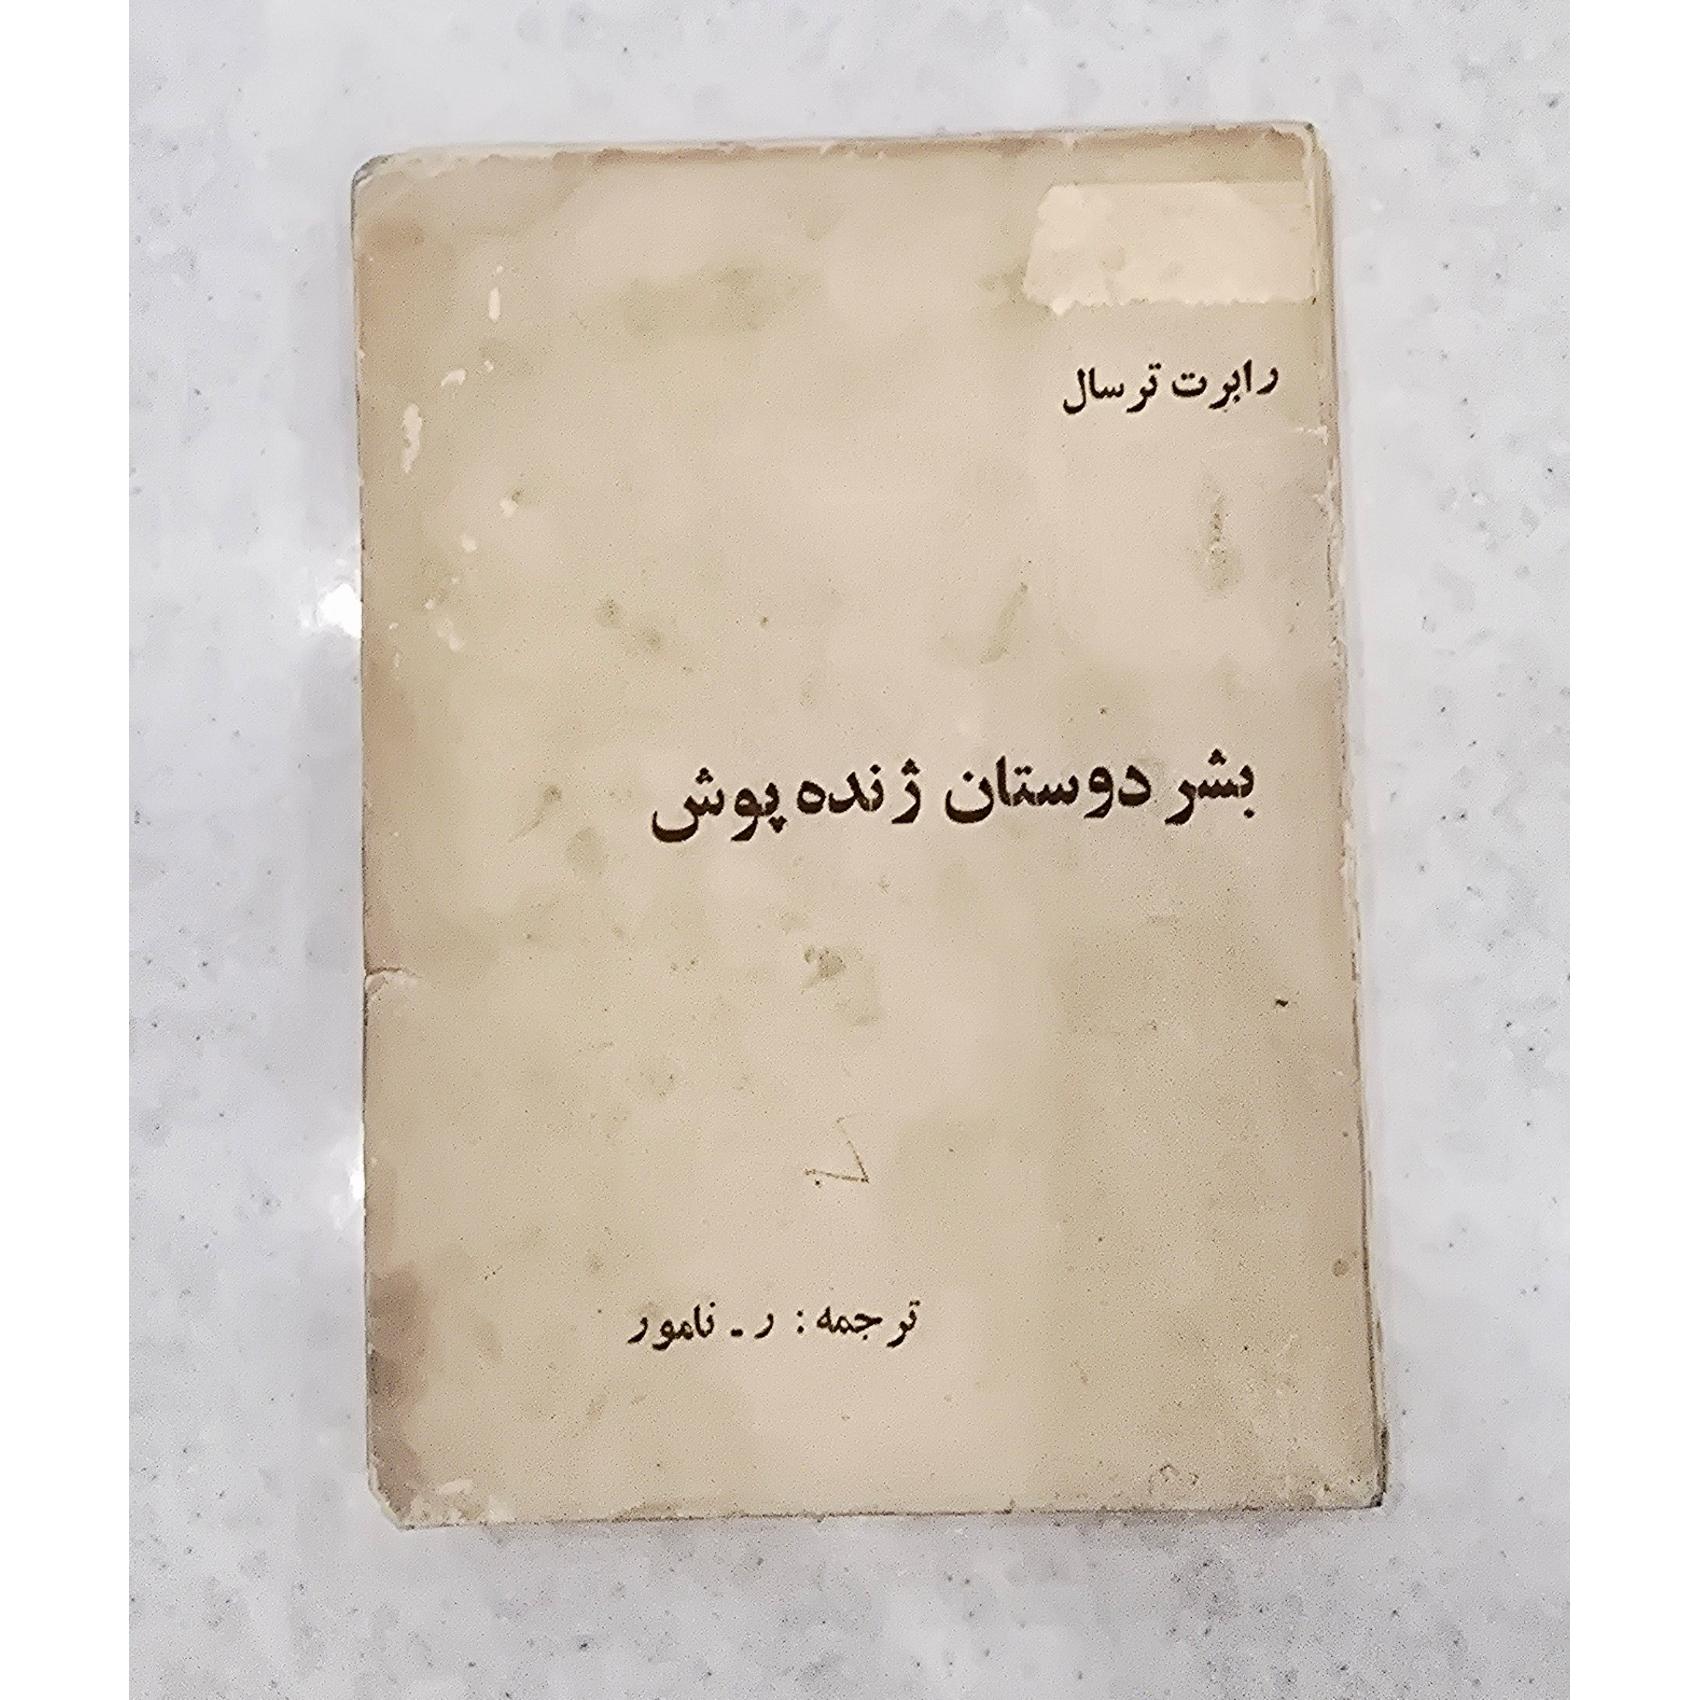 رابرت ترسال
بشر دوستان ژنده پوش
ترجمه: ر ـ نامور